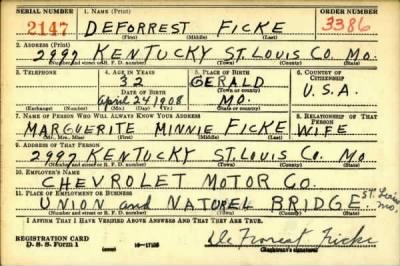 SERIAL NUMBER 1. NAME (Print) ORDER NUMBER
2147 DEFORREST FICKE 3386
(First) (Middle) (Last)
2. ADDRESS (Print)
2997 KENTUCKY ST. LOUIS CO. MO.
(Number and street or R. F. D. number) (Town) (County) (State)
3. TELEPHONE 4. AGE IN YEARS 5. PLACE OF BIRTH 6. COUNTRY OF CITIZENSHIP
32 GERALD
DATE OF BIRTH (Town or county) U.S.A.
April 24 1908 MO.
(Exchange) (Number) (Mo.) (Day) (Yr.) (State or country)
7. NAME OF PERSON WHO WILL ALWAYS KNOW YOUR ADDRESS 8. RELATIONSHIP OF THAT PERSON
MARGUERITE MINNIE FICKE WIFE
(Mr., Mrs., Miss) (First) (Middle) (Last)
9. ADDRESS OF THAT PERSON
2997 KENTUCKY ST. LOUIS CO. MO
(Number and street or R. F. D. number) (Town) (County) (State)
10. EMPLOYER'S NAME
CHEVROLET MOTOR CO.
11. PLACE OF EMPLOYMENT OR BUSINESS
UNION and NATUREL BRIDGE. ST. Louis Mo.
(Number and street or R. F. D. number) (Town) (County) (State)
I AFFIRM THAT I HAVE VERIFIED ABOVE ANSWERS AND THAT THEY ARE TRUE.
REGISTRATION CARD
D. S. S. Form 1 De Forrest Ficke
(over) (Registrant's signature)